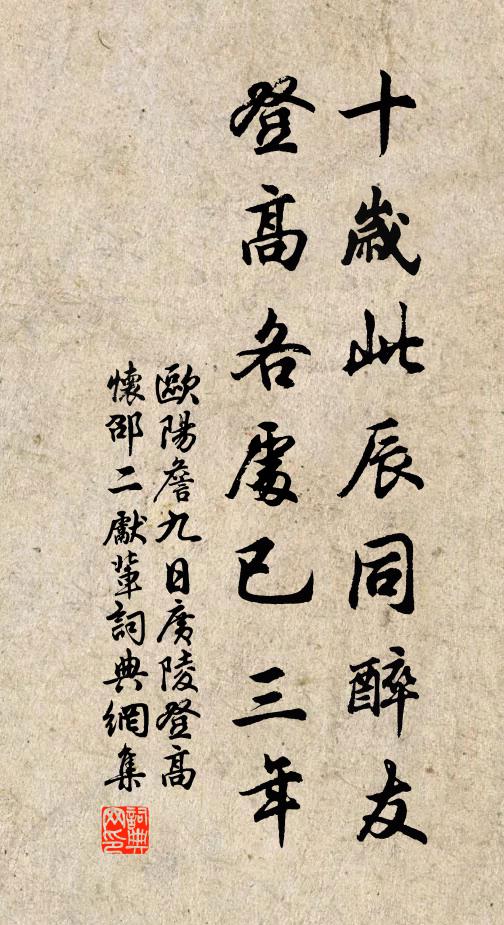 十歲此辰同醉友
登高各處已三年
歐陽詹九日廣陵登高
懷邵二獻輩詞典網集
詞典网印